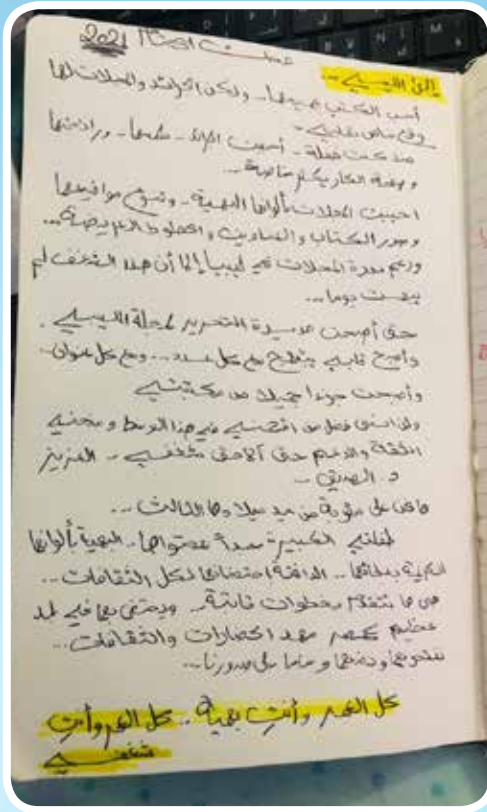 2021
إلى الليبي ...
أحب الكتب جميعها .. ولكن الجرائد والمجلات لها
وقع خاص بقلبي ..
منذ كنت طفلة .. أحببت الجرائد .. ورائحتها
وصفحة الكاريكاتير خاصة ...
أحببت المجلات بألوانها البهية .. وتنوع مواضيعها
وصور الكتاب والعناوين والخطوط العريضة ...
ورغم ندرة المجلات في ليبيا إلا أن هذا الشغف لم
يبهت يوما ...
حتى أصبحت مديرة التحرير لمجلة الليبي .
وأصبح قلبي مع كل عدد ... ومع كل عنوان ..
وأصبحت جزءا جميلا من مكتبتي
ولن أنسى فضل من في هذا الوسط ومنحني
الثقة والدعم حتى ألاحق شغفي .. العزيز
د. الصديق ..
ها هي على مقربة من عيد ميلادها الثالث ...
طفلتي الكبيرة جدا بمحتواها .. البهية بألوانها
.. الدافئة باحتضانها لكل الثقافات ...
هي ها تتقدم بخطوات ثابتة .. ويحتفى بها في بلد
عظيم كمصر مهد الحضارات والثقافات ...
كل العمر وأنت بهية .. كل العمر وأنت
شغفي